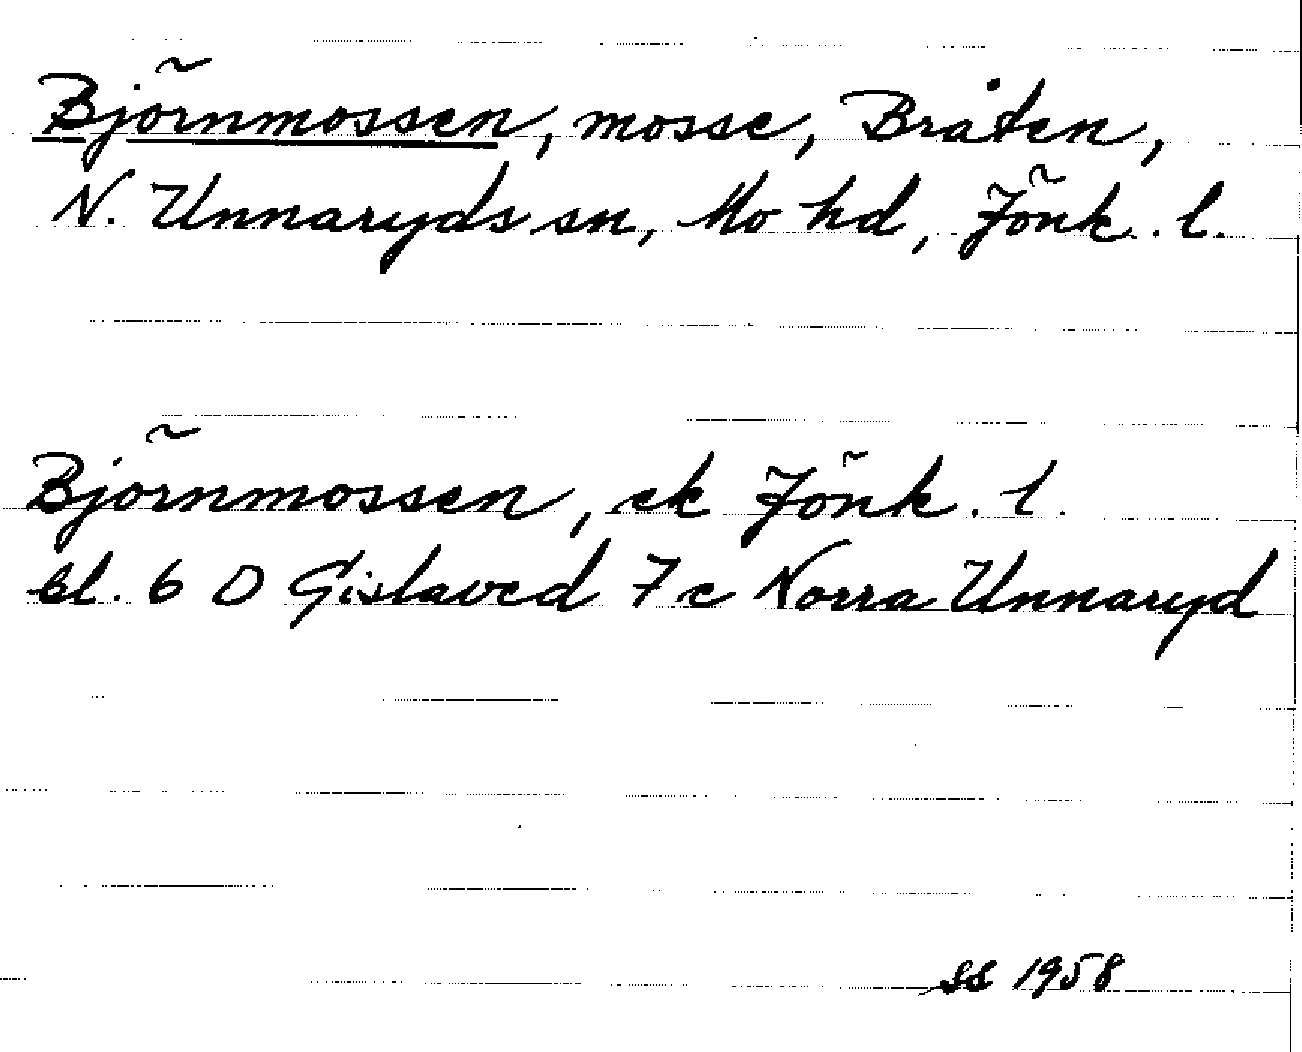 Björnmossen, mosse, Bråten,
N. Unnaryds sn, Mo hd, Jönk. l.
Björnmossen, ek Jönk. l.
bl. 6 D Gislaved 7c Norra Unnaryd
SS 1958